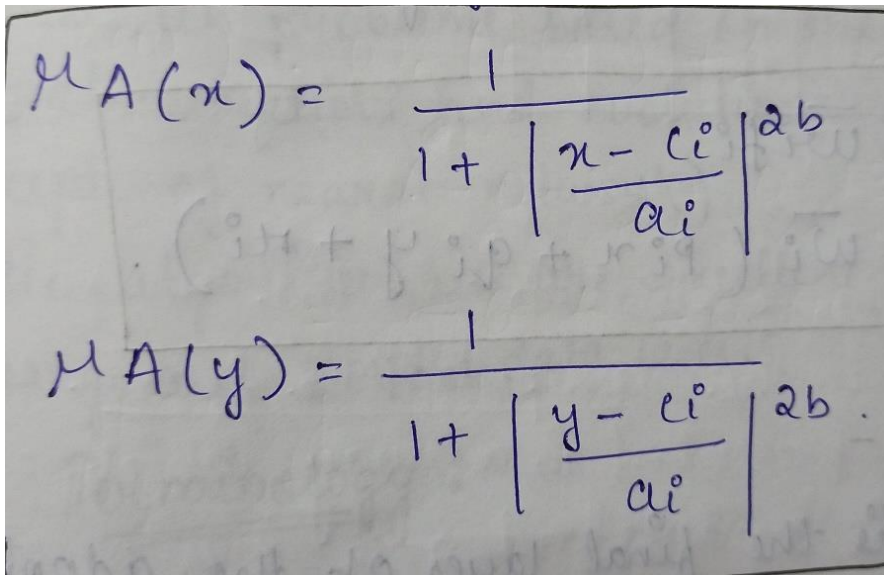 μA(x) = 1 / (1 + |(x - ci) / ai|^2b)
μA(y) = 1 / (1 + |(y - ci) / ai|^2b).